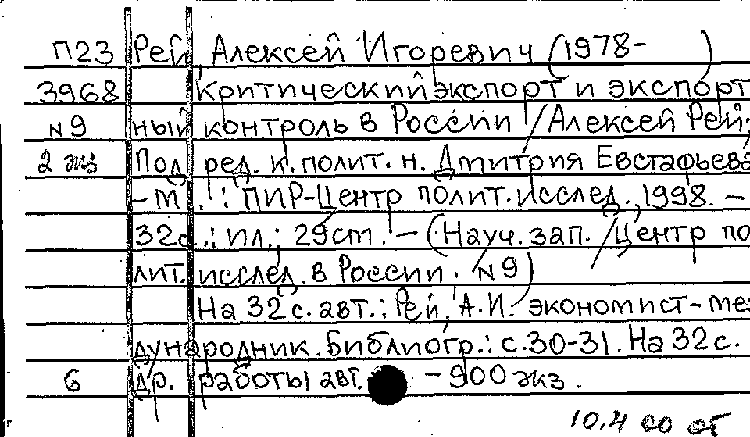 П23 Рей, Алексей Игоревич (1978- )
3968 Критический экспорт и экспорт
N9 ный контроль в России / Алексей Рей;
2 экз Под ред. к. полит. н. Дмитрия Евстафьева
- М. : ПИР-Центр полит. исслед., 1998. -
32с.: ил.; 29см. - (Науч. зап. / Центр по
лит. исслед. в России. N9)
На 32 с. авт.: Рей, А.И. - экономист-меж
дународник. Библиогр.: с.30-31. На 32с.
6 др. работы авт. - 900 экз.
10.4